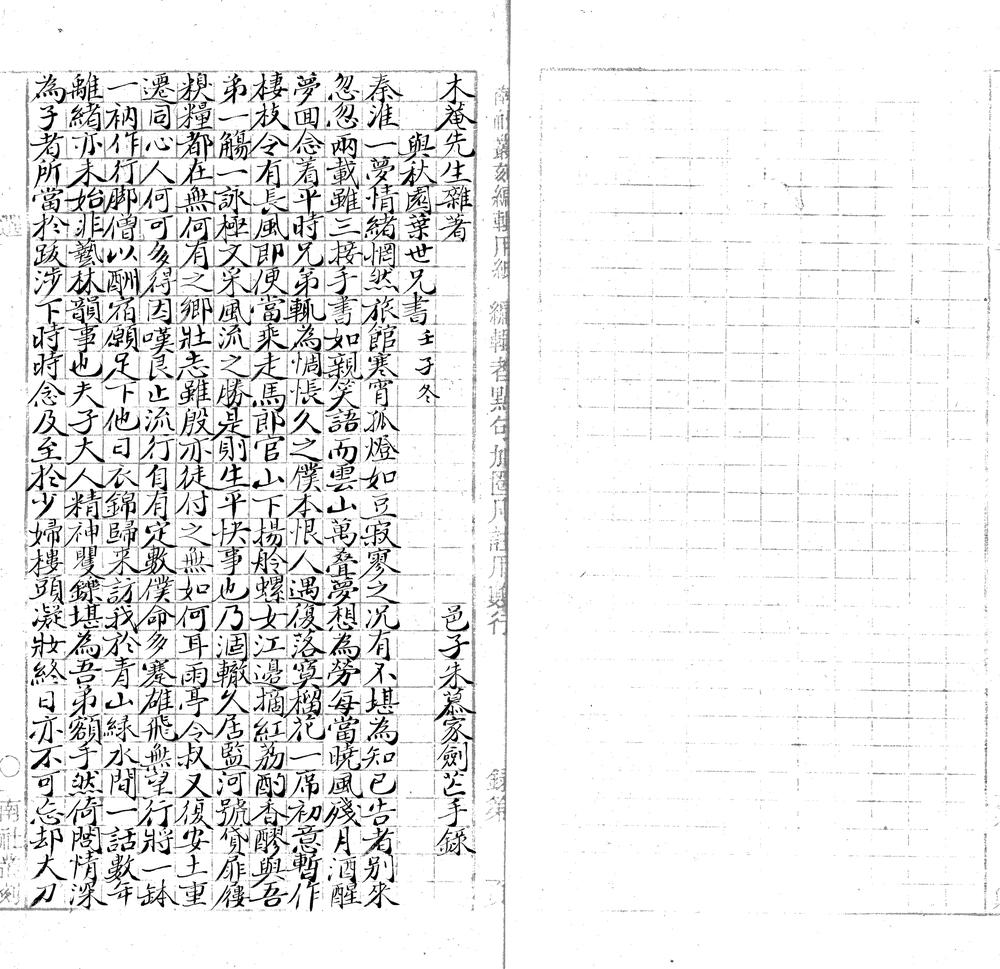 木菴先生雜著
邑子朱慕家劍芒手錄
與秋園葉世兄書 壬子冬
秦淮一夢情緒惘然旅館寒宵孤燈如豆寂寥之況有不堪為知已告者別來
忽忽兩載雖三接手書如親笑語而雲山萬叠夢想為勞每當曉風殘月酒醒
夢回念着平時兄弟輒為惆悵久之僕本恨人遇復落寞榴花一席初意暫作
棲枝令有長風即便當乘走馬郎官山下揚舲螺女江邊摘紅荔酌香醪與吾
弟一觴一詠極文采風流之勝是則生平快事也乃涸轍久居監河號貸屝屨
糗糧都在無何有之鄉壯志雖殷亦徒付之無如何耳雨亭令叔又復安土重
遷同心人何可多得因嘆良止流行自有定數僕命多蹇雄飛無望行將一缽
一衲作行脚僧以酬宿願足下他日衣錦歸来訪我於青山緑水間一話數年
離緒亦未始非藝林韻事也夫子大人精神矍鑠堪為吾弟額手然倚閭情深
為子者所當於跋涉下時時念及至於少婦樓頭凝妝終日亦不可忘却大刀
南社叢刻編輯用紙 編輯者點句加圈凡註用 行